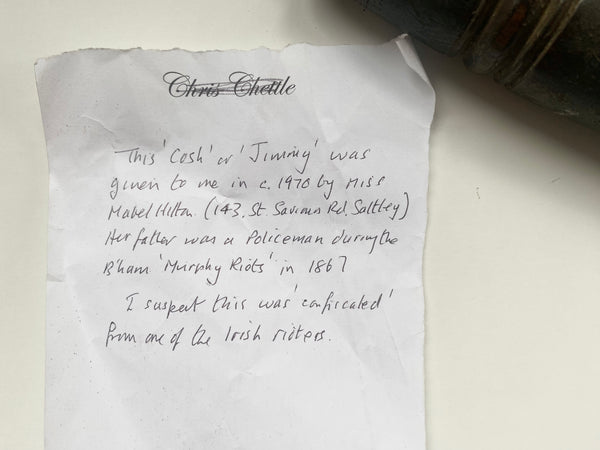 Chris Chettle
This 'Cosh' or 'Jimmy' was
given to me in c. 1970 by Miss
Mabel Hilton. (143, St. Saviours Rd. Saltley)
Her father was a Policeman during the
B'ham 'Murphy Riots' in 1867
I suspect this was 'confiscated'
from one of the Irish rioters.